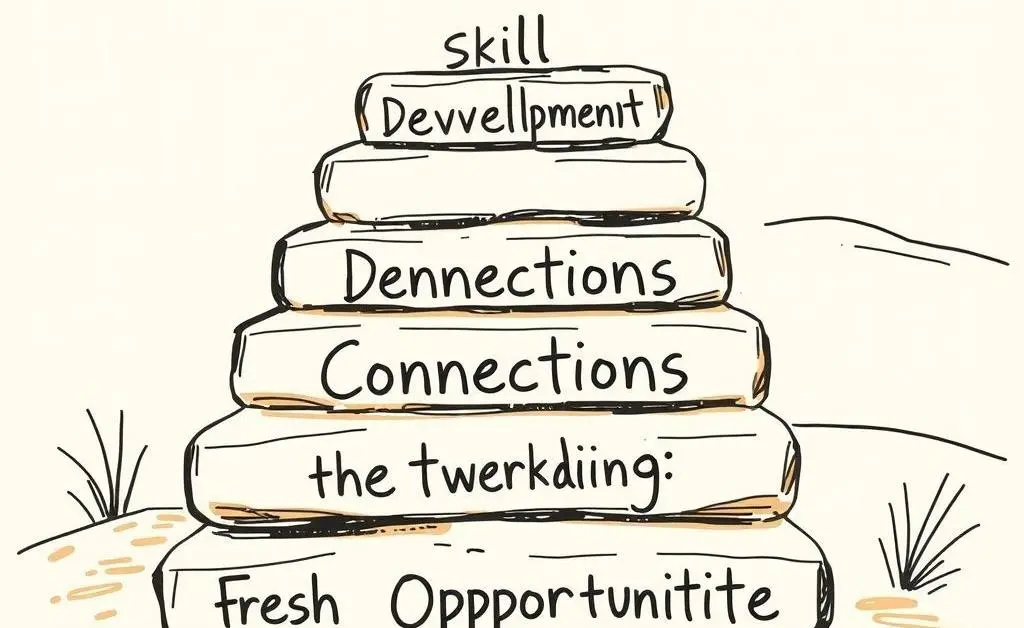 skill
Devvellpment
Dennections
Connections
the twerkdiing:
Fresh Oppportunitite